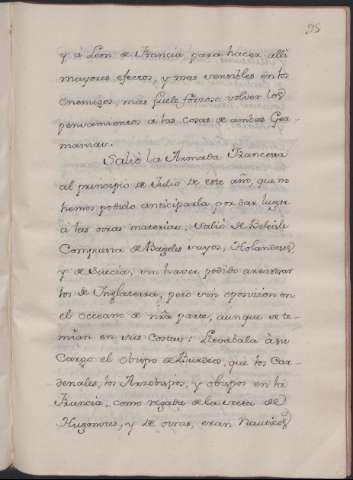 95
y à Leon de Francia para hacer alli
mayores efectos, y mas sensibles en los
enemigos, mas fuele forzoso volver los
pensamientos a las cosas de ambas Ger-
manias.
Salió la Armada Francesa
al principio de Julio de este año, que no
hemos podido anticiparla, por dar lugar
á las otras materias. Salió de
Compuesta de Bageles suyos, Holandeses
y de Suecia, sin haver podido
los de Inglaterra, pero sin oposicion en
el Occeano de nra parte, aunque se te-
mian en sus Costas: Llevabala à su
Cargo el Obispo de Burdeos, que los Car-
denales, los Arzobispos, y obispos en la
Francia, como regalia de la secta de
Hugonotes, y de otras, eran Nauticos